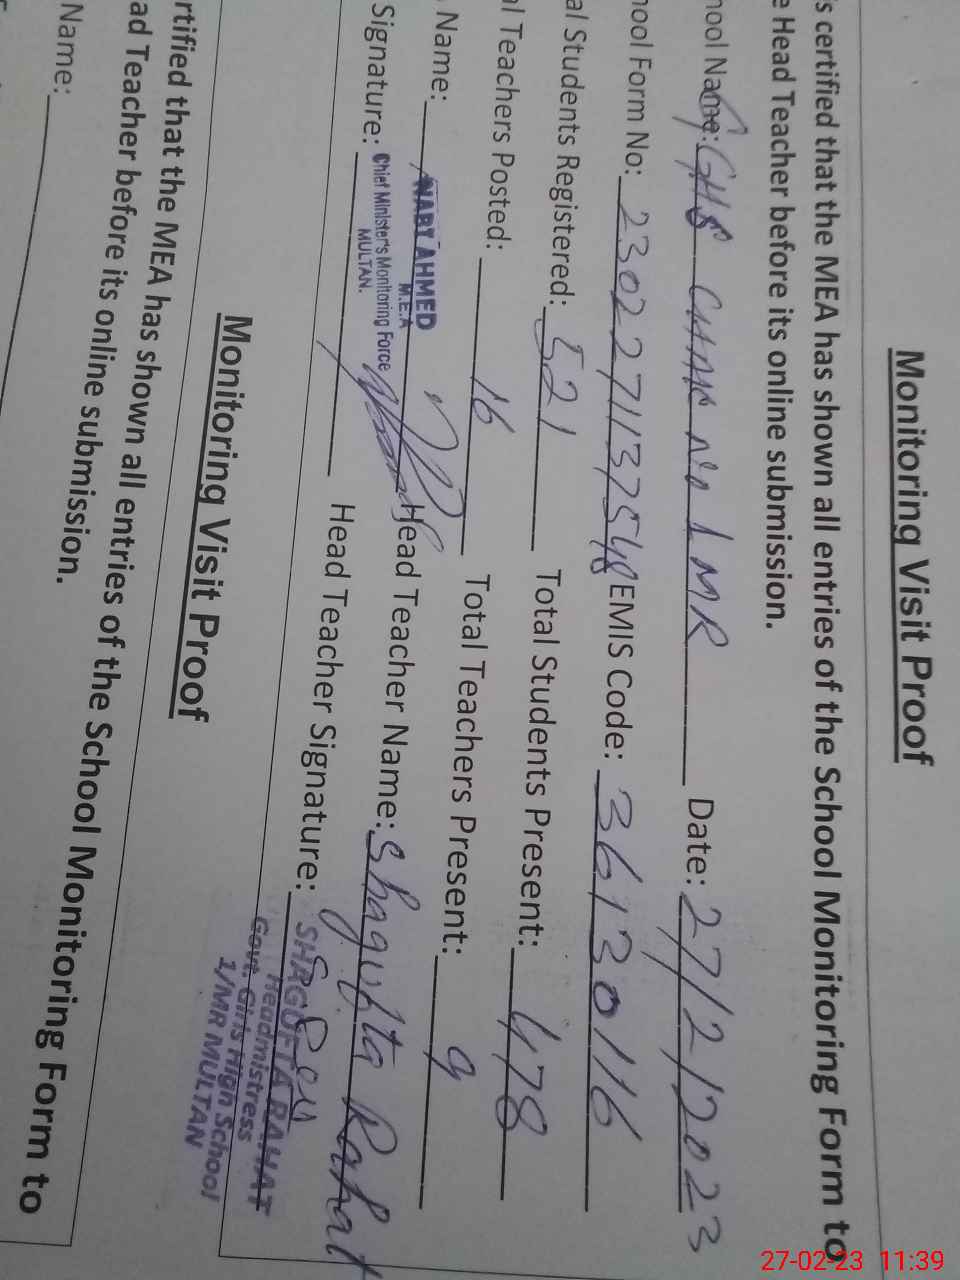 Monitoring Visit Proof
is certified that the MEA has shown all entries of the School Monitoring Form to
e Head Teacher before its online submission.
hool Name: GGHS CHAK No 1 MR Date: 27/2/2023
hool Form No: 2302271137548 EMIS Code: 36130116
al Students Registered: 521 Total Students Present: 478
al Teachers Posted: 16 Total Teachers Present: 9
Name: NABI AHMED Head Teacher Name: Shagufta Rahat
M.E.A
Chief Minister's Monitoring Force
MULTAN.
Signature: Head Teacher Signature:
SHAGUFTA RAHAT
Headmistress
Govt. Girls High School
1/MR MULTAN
Monitoring Visit Proof
rtified that the MEA has shown all entries of the School Monitoring Form to
ad Teacher before its online submission.
Name:
27-02-23 11:39